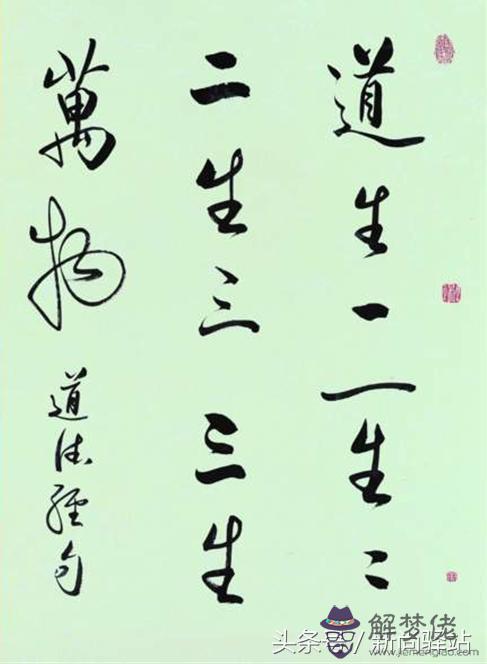 道生一一生二
二生三三生
萬物
道德經句
解梦佬
www.jiemenglao.com
头条号/新尚驿站